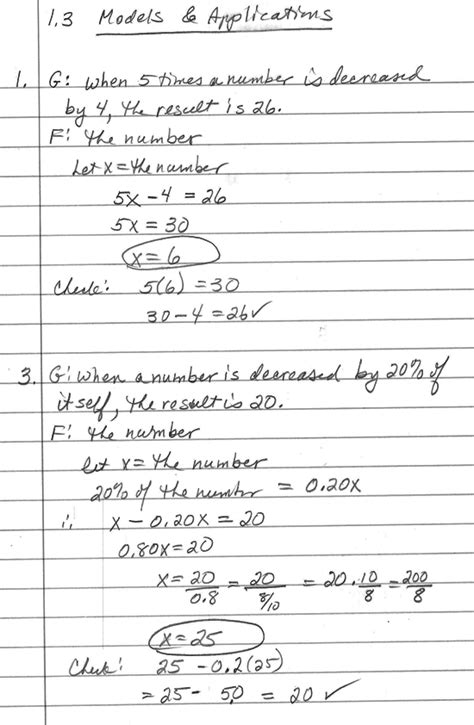 1.3 Models & Applications
1. G: when 5 times a number is decreased
by 4, the result is 26.
F: the number
Let x = the number
5x - 4 = 26
5x = 30
x = 6
Check: 5(6) = 30
30 - 4 = 26 ✓
3. G: when a number is decreased by 20% of
itself, the result is 20.
F: the number
let x = the number
20% of the number = 0.20x
∴ x - 0.20x = 20
0.80x = 20
x = 20/0.8 = 20/(8/10) = 20 · 10/8 = 200/8
x = 25
Check: 25 - 0.2(25)
= 25 - 5.0 = 20 ✓